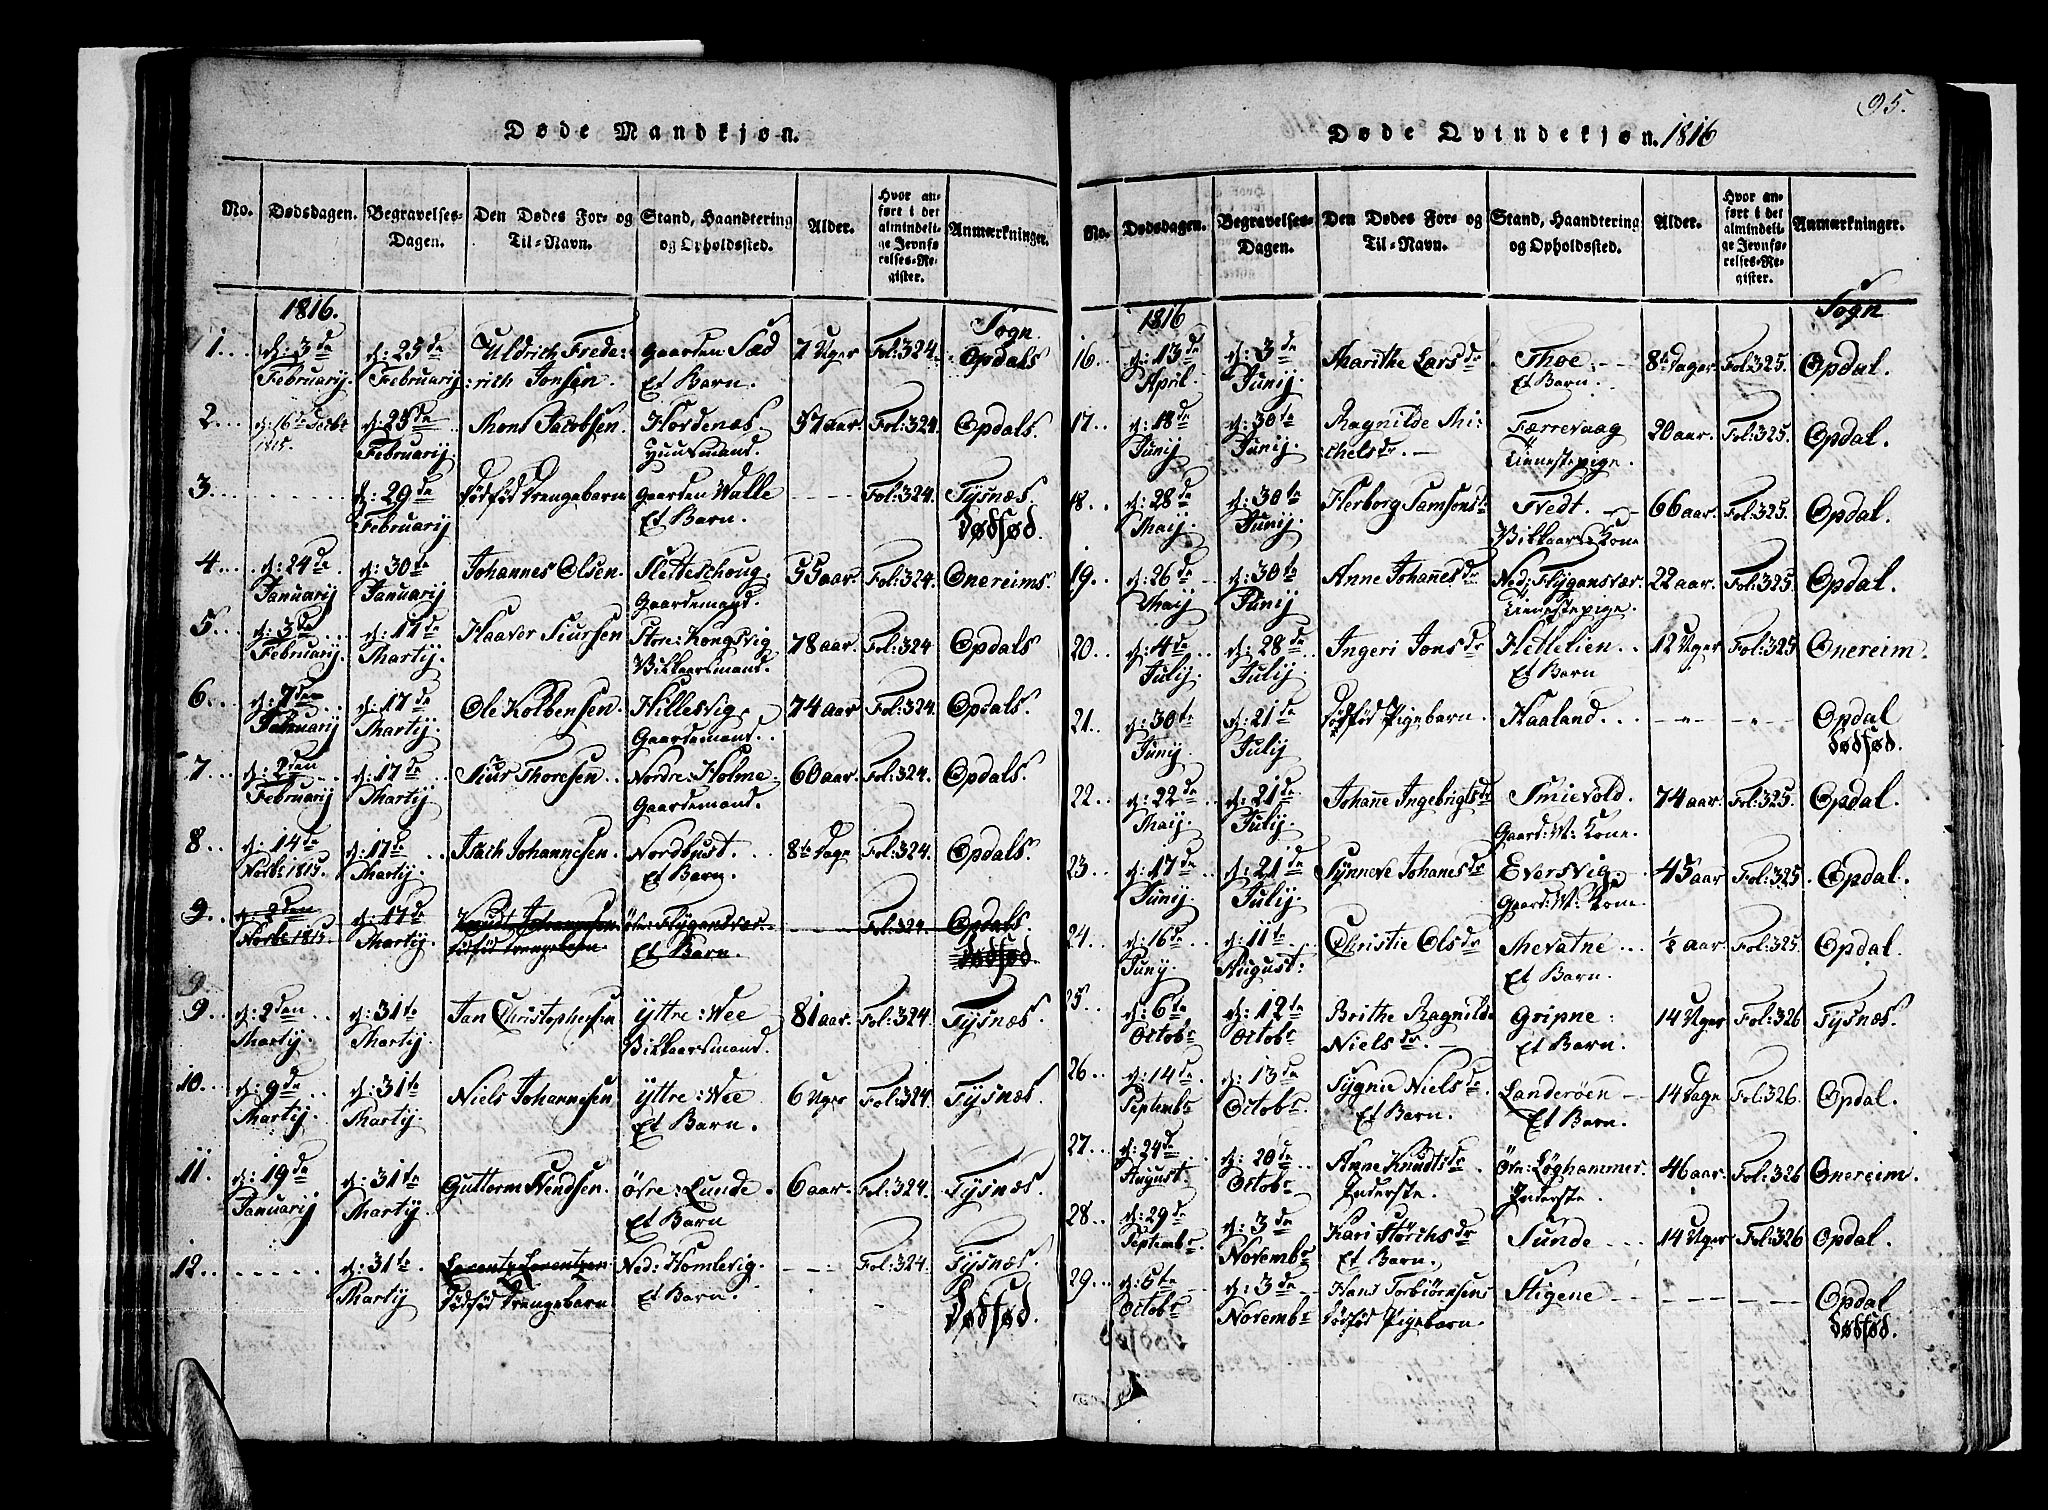 Døde Mandkjøn.
No. Dødsdagen. Begravelses-Dagen. Den Dødes For- og Til-Navn. Stand, Haandtering og Opholdssted. Alder. Hvor anført i det almindelige Jevnførelses-Register. Anmærkninger.
1816. Sogn
1. d: 3de Februarij. d: 25de Februarij Uldrich Frede: rich Jonsen. Gaarden Sæd Et Barn. 7 Uger Fol: 324. Opdals
2. d: 16te Decbr 1815. d: 25de Februarij Mons Jacobsen. Hordenæs Huusmand. 57 aar. Fol: 324. Opdals.
3. d: 29de Februarij Dødfød Drengebarn Gaarden Walle Et Barn. Fol: 324. Tysnæs. dødfød.
4. d: 24de Januarij d: 30te Januarij Johannes Olsen. Sletteschoug. Gaardemand. 55 aar. Fol: 324. Onereims.
5. d: 3de Februarij. d: 17de Martij. Haaver Siursen Store: Kongsvig Vilkaarsmand. 78 aar. Fol: 324 Opdals
6. d: 7den Februarij d: 17de Martij. Ole Kolbensen. Hillesvig Gaardemand. 74 aar Fol: 324. Opdals.
7. d: 2den Februarij d: 17de Martij Siur Thoresen Nordre: Holme Gaardemand. 60 aar. Fol: 324. Opdals.
8. d: 14de Novbr 1815. d: 17de Martij. Isach Johannesen. Nordhust. Et Barn. 8te Dage Fol: 324. Opdals.
9. d: 2den Novbr 1815. d: 17de Martij. Knudt Johannesen dødfød Drengebarn. Øvre: Flygansvær Et Barn. Fol: 324. Opdals. dødfød
9.
9. d: 2den Martij. d: 31te Martij. Jan Christophersen Yttre: Wee Vilkaarsmand. 81 aar. Fol: 324. Tysnæs.
10. d: 9de Martij. d: 31te Martij. Niels Johannesen Yttre: Wee Et Barn. 6 Uger Fol: 324. Tysnæs.
11. d: 19de Januarij d: 31te Martij. Guttorm Svendsen. Øvre: Lunde. Et Barn 6 aar. Fol: 324. Tysnæs.
12. d: 31te Martij Lorentz Lorentzen Dødfød Drengebarn Ned: Homlevig. Et Barn. Fol: 324. Tysnæs. Dødfød.
95.
Døde Qvindekjøn. 1816
No. Dødsdagen. Begravelses-Dagen. Den Dødes For- og Til-Navn. Stand, Haandtering og Opholdssted. Alder. Hvor anført i det almindelige Jevnførelses-Register. Anmærkninger.
1816 Sogn
16. d: 13de April. d: 3de Junij. Marithe Larsdr. Thoe. Et Barn. 8te Dager Fol: 325. Opdal.
17. d: 18de Junij d: 30te Junij. Ragnilde Mi: chelsdr. Færrevaag Tienestepige. 20 aar. Fol: 325. Opdal.
18. d: 28de Maij. d: 30te Junij. Herborg Samsonsdr Tvedt. Vilkaars Kone 66 aar. Fol: 325. Opdal.
19. d: 26de Maij d: 30te Junij Anne Johannesdr Ned: Flygansvær Tienestepige. 22 aar. Fol: 325. Opdal.
20. d: 4de Julij. d: 28de Julij. Ingeri Jonsdr Hettelien Et Barn 12 Uger Fol: 325 Onereim.
21. d: 30te Junij. d: 21de Julij dødfød Pigebarn. Haaland. Opdal dødfød.
22. d: 22de Maij. d: 21de Julij. Johanne Ingebrigtsdr Smievold. Gaard: M: Kone. 74 aar. Fol: 325. Opdal.
23. d: 17de Junij d: 21de Julij. Synneve Johanesdr Eversvig Gaard: M: Kone 45 aar Fol: 325. Opdal.
24. d: 16de Junij. d: 11te August: Christie Olsdr Mevatne Et Barn. ½ aar Fol: 325. Opdal.
25. d: 6te Octobr d: 12te Octobr Brithe Ragnilde Nielsdr. Gripne: Et Barn. 14 Uger Fol: 326 Tysnæs.
26. d: 14de Septembr d: 13de Octobr. Sygni Nielsdr. Et Barn. Landerøen Et Barn. 14 Dage Fol: 326. Opdal.
27. d: 24de August. d: 20de Octobr Anne Knudtsdr Inderste. Øvre: Løghammer Inderste. 46 aar. Fol: 326 Onereim.
28. d: 29de Septembr. d: 3de Novembr Kari Størchsdr Et Barn. Sunde 14 Uger Fol: 326 Opdal.
29. d: 6te Octobr d: 3de Novembr Hans Torbiørnsens dødfød Pigebarn. Stigene Opdal dødfød.